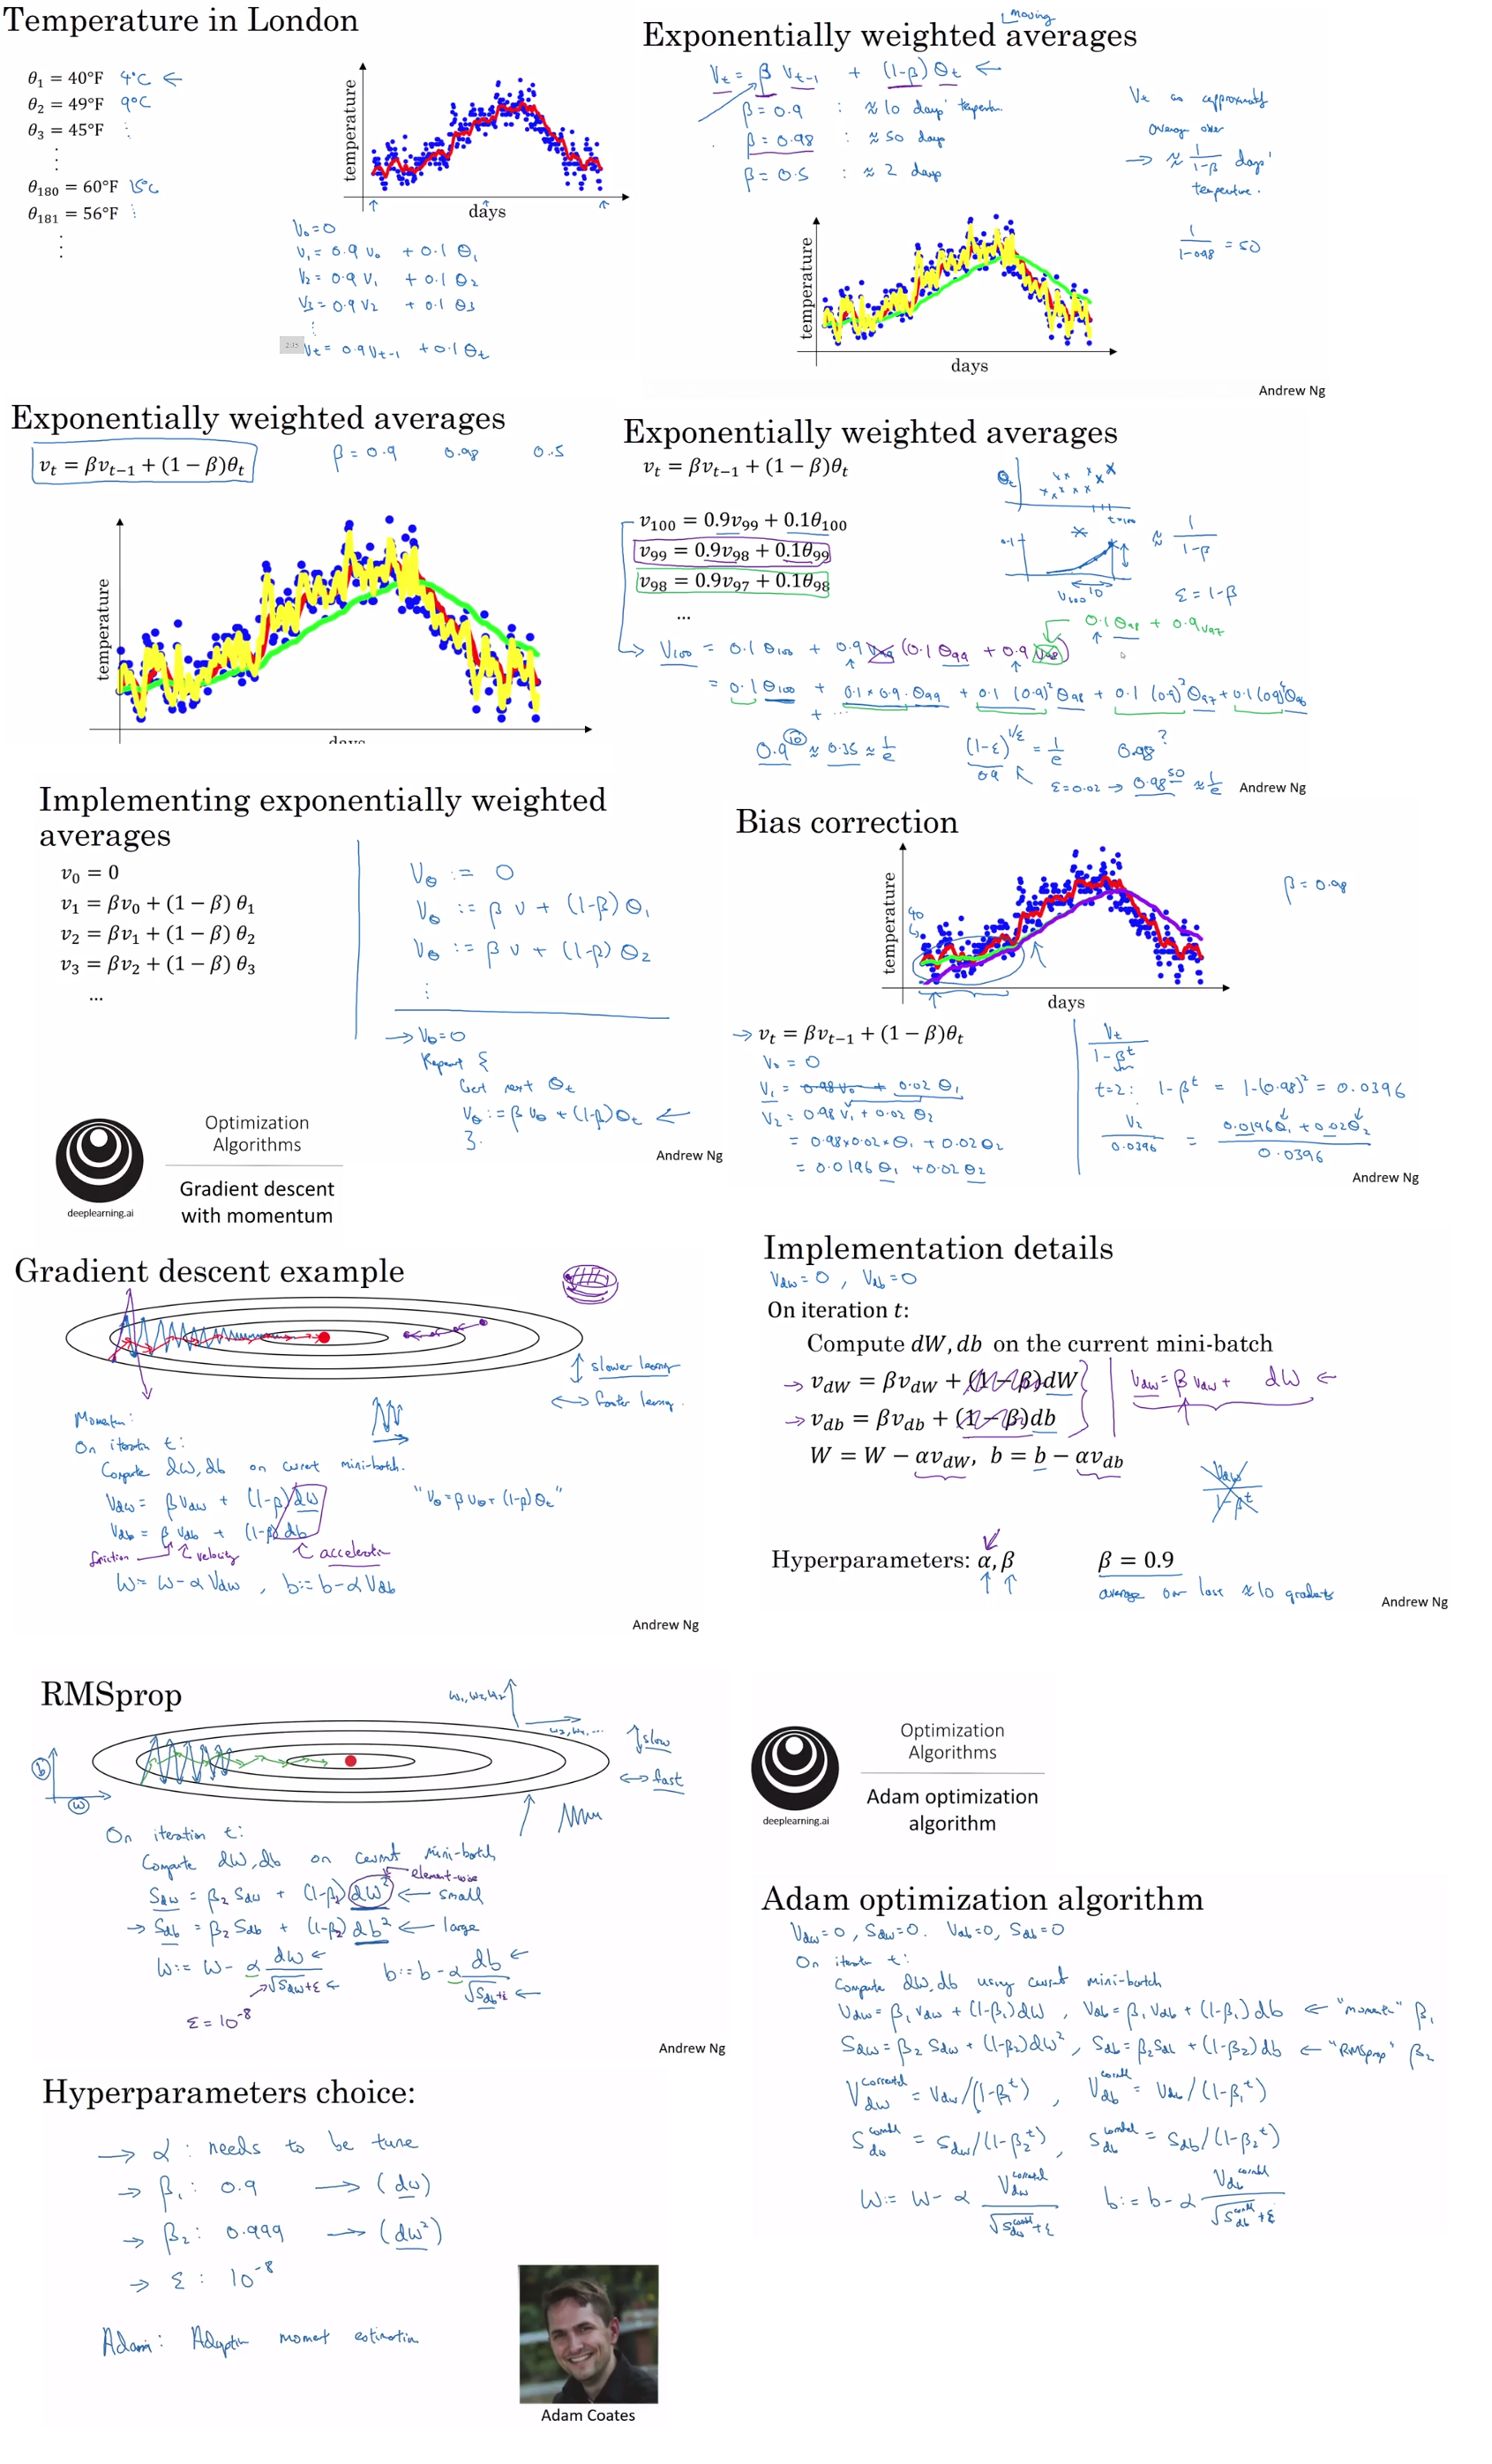 Temperature in London
θ₁ = 40°F 4°C ←
θ₂ = 49°F 9°C
θ₃ = 45°F ⋮
⋮
θ₁₈₀ = 60°F 15°C
θ₁₈₁ = 56°F ⋮
⋮
temperature
days
V₀ = 0
V₁ = 0.9 V₀ + 0.1 θ₁
V₂ = 0.9 V₁ + 0.1 θ₂
V₃ = 0.9 V₂ + 0.1 θ₃
⋮
Vt = 0.9 Vt-1 + 0.1 θt
moving
Exponentially weighted averages
Vt = β Vt-1 + (1-β) θt ←
β = 0.9 : ≈ 10 days' temperature
β = 0.98 : ≈ 50 days
β = 0.5 : ≈ 2 days
Vt as approximately
average over
→ ≈ 1/(1-β) days'
temperature.
1/(1-0.98) = 50
temperature
days
Andrew Ng
Exponentially weighted averages
vt = βvt−1 + (1 − β)θt
β = 0.9 0.98 0.5
temperature
days
Exponentially weighted averages
vt = βvt−1 + (1 − β)θt
v₁₀₀ = 0.9v₉₉ + 0.1θ₁₀₀
v₉₉ = 0.9v₉₈ + 0.1θ₉₉
v₉₈ = 0.9v₉₇ + 0.1θ₉₈
...
θt
t=100
0.1
≈ 1/(1-β)
V₁₀₀ 10
ε = 1-β
0.1 θ₉₈ + 0.9 V₉₇
→ V₁₀₀ = 0.1 θ₁₀₀ + 0.9 V₉₉ (0.1 θ₉₉ + 0.9 V₉₈)
= 0.1 θ₁₀₀ + 0.1 × 0.9 · θ₉₉ + 0.1 (0.9)² θ₉₈ + 0.1 (0.9)³ θ₉₇ + 0.1 (0.9)⁴ θ₉₆
+ ...
0.9¹⁰ ≈ 0.35 ≈ 1/e (1-ε)^(1/ε) = 1/e 0.98?
0.9
ε = 0.02 → 0.98⁵⁰ ≈ 1/e
Andrew Ng
Implementing exponentially weighted
averages
v₀ = 0
v₁ = βv₀ + (1 − β) θ₁
v₂ = βv₁ + (1 − β) θ₂
v₃ = βv₂ + (1 − β) θ₃
...
Vθ := 0
Vθ := β V + (1-β) θ₁
Vθ := β V + (1-β) θ₂
⋮
→ Vθ = 0
Repeat {
Get next θt
Vθ := β Vθ + (1-β) θt ←
}
Andrew Ng
Bias correction
temperature
days
40
β = 0.98
→ vt = βvt−1 + (1 − β)θt
V₀ = 0
V₁ = 0.98 V₀ + 0.02 θ₁
V₂ = 0.98 V₁ + 0.02 θ₂
= 0.98 × 0.02 × θ₁ + 0.02 θ₂
= 0.0196 θ₁ + 0.02 θ₂
Vt/(1-βᵗ)
t=2: 1-βᵗ = 1-(0.98)² = 0.0396
V₂/0.0396 = (0.0196θ₁ + 0.02θ₂)/0.0396
Andrew Ng
deeplearning.ai
Optimization
Algorithms
Gradient descent
with momentum
Gradient descent example
↕ slower learning
↔ faster learning.
Momentum:
On iteration t:
Compute dW, db on current mini-batch.
Vdw = β Vdw + (1-β) dW
Vdb = β Vdb + (1-β) db
"Vθ = β Vθ + (1-β) θt"
friction velocity acceleration
W = W - α Vdw , b := b - α Vdb
Andrew Ng
Implementation details
Vdw = 0 , Vdb = 0
On iteration t:
Compute dW, db on the current mini-batch
→ vdW = βvdW + (1 − β)dW
→ vdb = βvdb + (1 − β)db
Vdw = β Vdw + dW ←
W = W − αvdW, b = b − αvdb
Vdw/(1-βᵗ)
Hyperparameters: α, β β = 0.9
average over last ≈ 10 gradients
Andrew Ng
RMSprop
w₁, w₂, w₂
w₃, w₄, ...
↕ slow
↔ fast
b
w
On iteration t:
Compute dW, db on current mini-batch
element-wise
Sdw = β₂ Sdw + (1-β₂) dW² ← small
→ Sdb = β₂ Sdb + (1-β₂) db² ← large
W := W - α dW/√Sdw+ε ← b := b - α db/√Sdb+ε ←
ε = 10⁻⁸
Andrew Ng
deeplearning.ai
Optimization
Algorithms
Adam optimization
algorithm
Adam optimization algorithm
Vdw = 0, Sdw = 0. Vdb = 0, Sdb = 0
On iteration t:
Compute dW, db using current mini-batch
Vdw = β₁ Vdw + (1-β₁) dW , Vdb = β₁ Vdb + (1-β₁) db ← "momentum" β₁
Sdw = β₂ Sdw + (1-β₂) dW² , Sdb = β₂ Sdb + (1-β₂) db ← "RMSprop" β₂
Vdw^corrected = Vdw/(1-β₁ᵗ) , Vdb^corrected = Vdb/(1-β₁ᵗ)
Sdw^corrected = Sdw/(1-β₂ᵗ) , Sdb^corrected = Sdb/(1-β₂ᵗ)
W := W - α Vdw^corrected/√Sdw^corrected+ε b := b - α Vdb^corrected/√Sdb^corrected+ε
Hyperparameters choice:
→ α : needs to be tune
→ β₁ : 0.9 → (dw)
→ β₂ : 0.999 → (dw²)
→ ε : 10⁻⁸
Adam : Adaptive moment estimation
Adam Coates